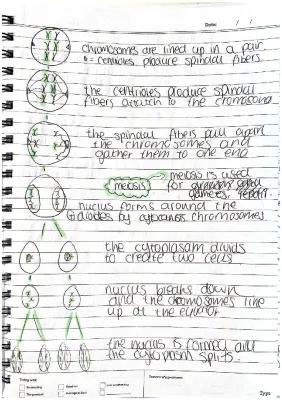 Date: / /
chromosomes are lined up in a pair.
= centrioles produce spindal fibers.
the centrioles produce spindal
fibers attatch to the cromosome
the spindal fibers pull apart
the chromosomes and
gather them to one end
meiosis
meiosis is used
for
gametes, repair.
nucleus forms around the
divides by cytocanisis chromosomes.
the cytoplasam divids
to create two cells
nucleus breaks down
and the chromosomes line
up at the equator
the nucleus is formed and
the cytoplasm splits.